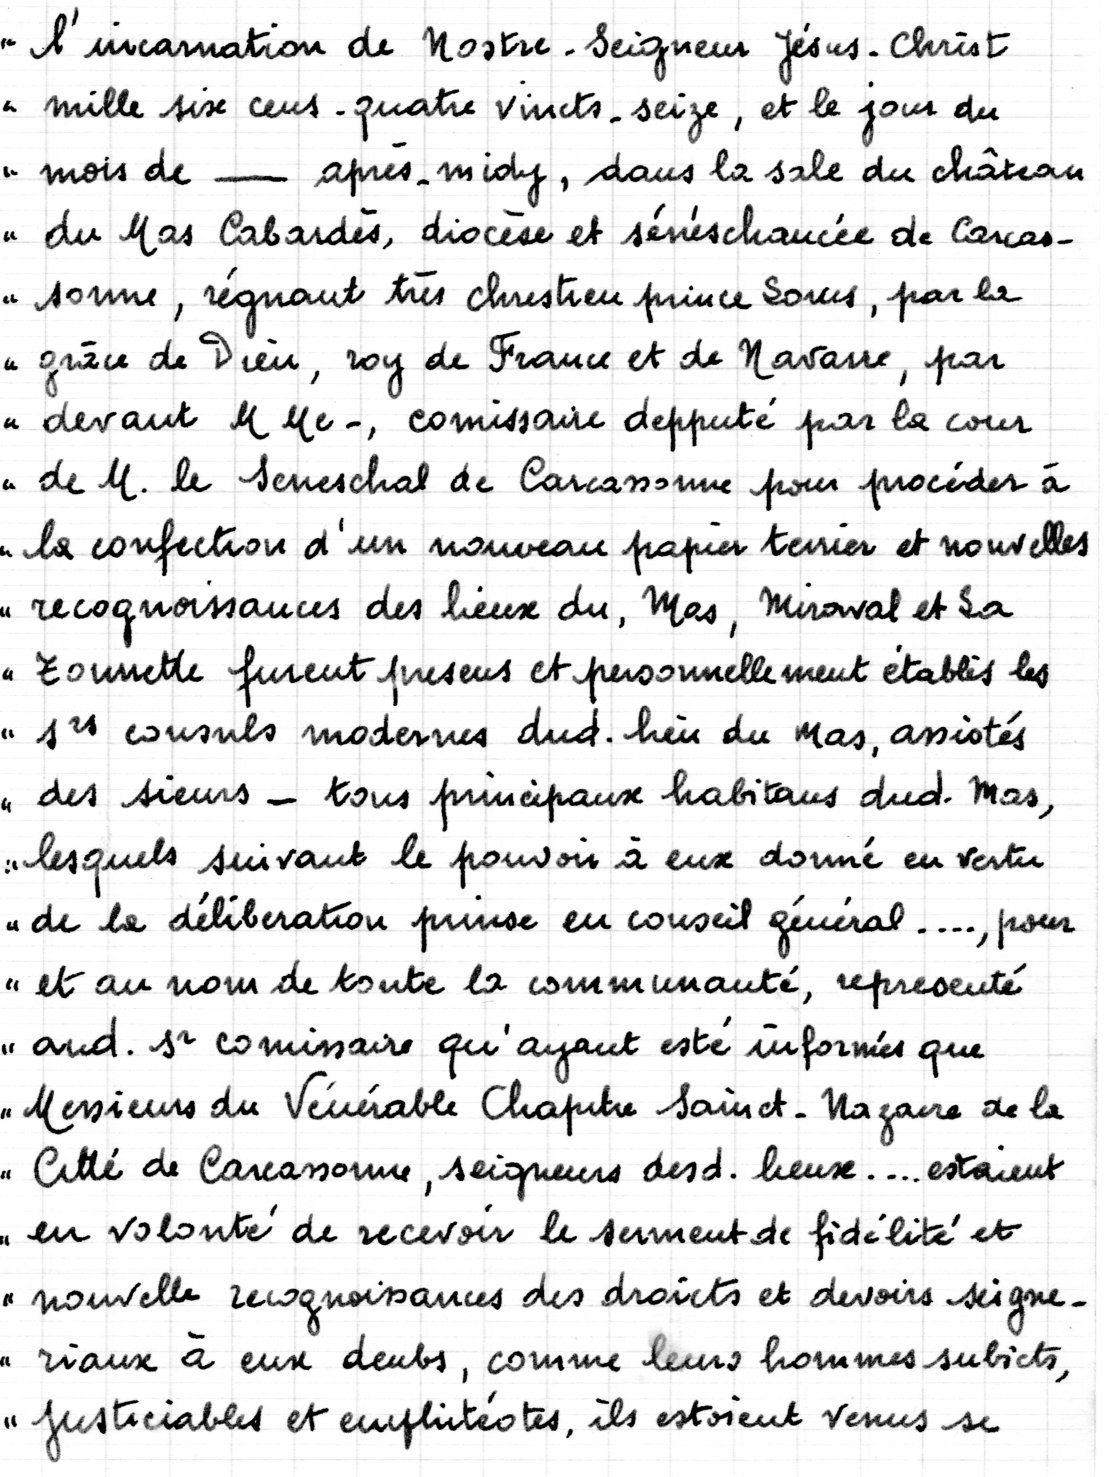 " l'incarnation de Nostre-Seigneur Jésus-Christ
" mille six cens-quatre vincts-seize, et le jour du
" mois de — après-midy, dans la sale du château
" du Mas Cabardès, diocèse et sénéschaucée de Carcas-
" sonne, régnant très chrestien prince Louis, par la
" grâce de Dieu, roy de France et de Navarre, par
" devant M Me -, comissaire depputé par la cour
" de M. le Seneschal de Carcassonne pour procéder à
" la confection d'un nouveau papier terrier et nouvelles
" recognoissances des lieux du, Mas, Miraval et La
" Tounette furent presens et personnellement établis les
" srs consuls modernes dud. lieu du Mas, assistés
" des sieurs — tous principaux habitans dud. Mas,
" lesquels suivant le pouvoir à eux donné en vertu
" de la déliberation prinse en conseil général ...., pour
" et au nom de toute la communauté, representé
" aud. sr comissaire qu'ayant esté informés que
" Messieurs du Vénérable Chapitre Sainct-Nazaire de la
" Citté de Carcassonne, seigneurs desd. lieux .... estaient
" en volonté de recevoir le serment de fidélité et
" nouvelle recognoissances des droicts et devoirs seigne-
" riaux à eux deubs, comme leurs hommes subiets,
" justiciables et emphitéotes, ils estoient venus se